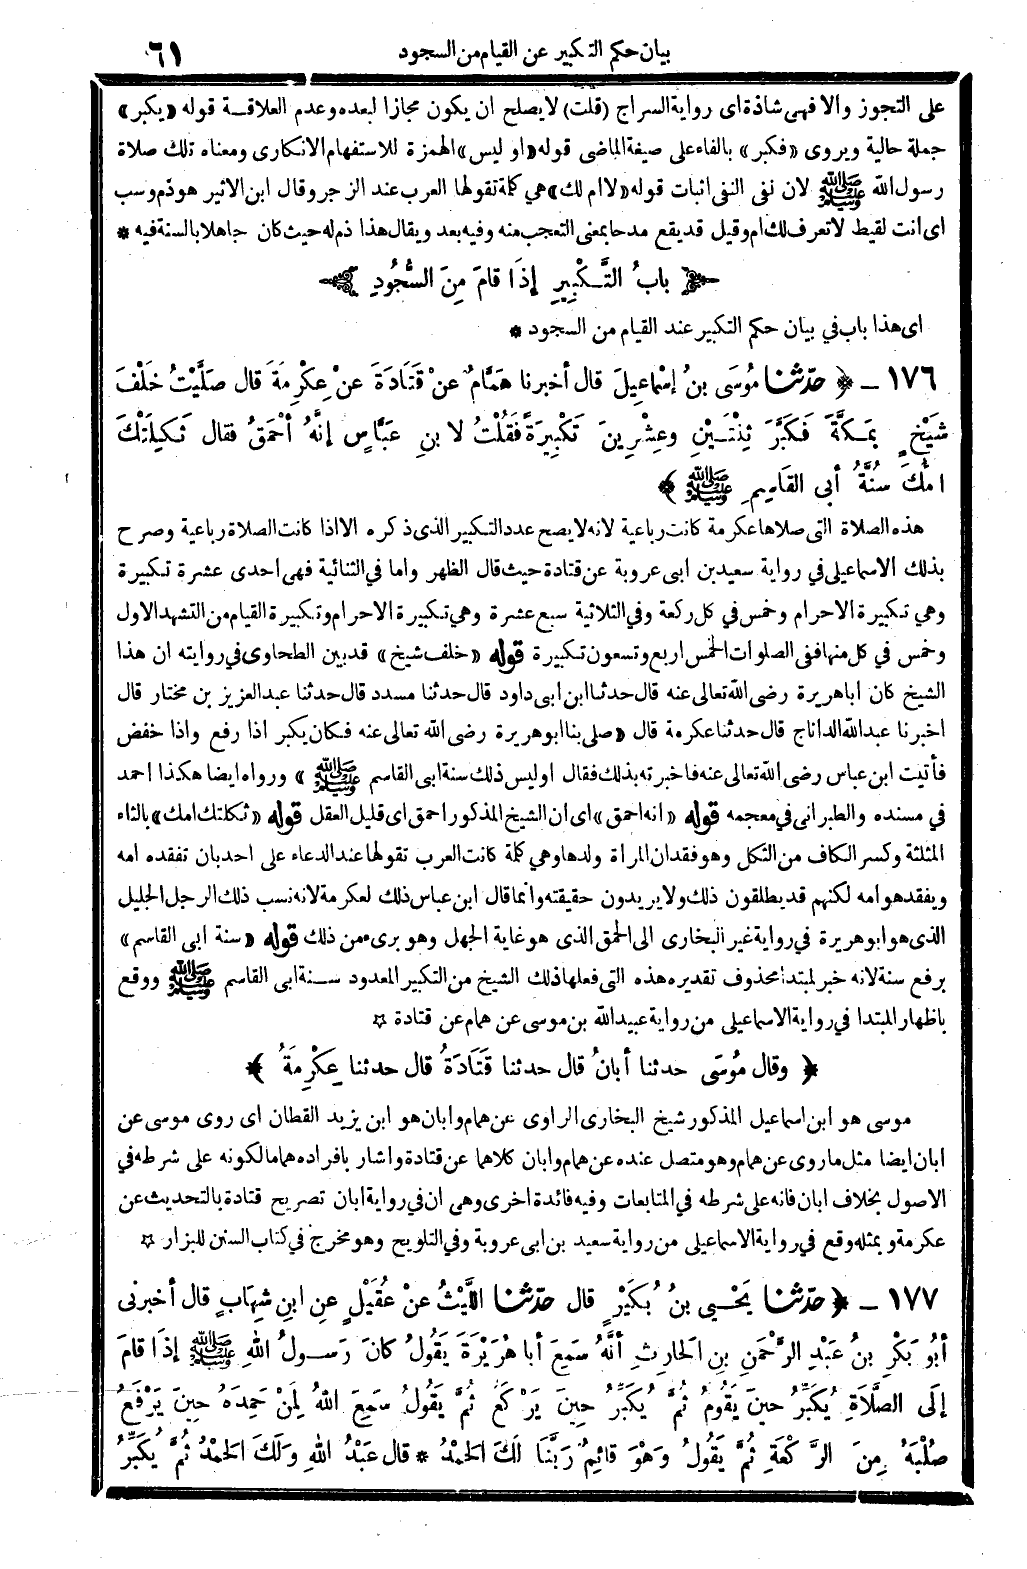 بيان حكم التكبير عن القيام من السجود ٦١
على التجوز والا فهى شاذة اى رواية السراج (قلت) لا يصلح ان يكون مجازا لبعده وعدم العلاقة قوله «يكبر»
جملة حالية ويروى «فكبر» بالفاء على صيغة الماضى قوله «او ليس» الهمزة للاستفهام الانكارى ومعناه تلك صلاة
رسول الله ﷺ لان نفى النفى اثبات قوله «لا ام لك» هى كلمة تقولها العرب عند الزجر وقال ابن الاثير هو ذم وسب
اى انت لقيط لا تعرف لك ام وقيل قد يقع مدحا بمعنى التعجب منه وفيه بعد ويقال هذا ذم له حيث كان جاهلا بالسنة فيه *
﴿ بابُ التَّكْبِيرِ إِذَا قامَ مِنَ السُّجُودِ ﴾
اى هذا باب فى بيان حكم التكبير عند القيام من السجود *
١٧٦ - ﴿ حدّثنا مُوسَى بنُ إسْماعِيلَ قال أخبرنا هَمَّامٌ عنْ قَتَادَةَ عنْ عِكْرِمَةَ قال صَلَّيْتُ خَلْفَ
شَيْخٍ بِمَكَّةَ فَكَبَّرَ ثِنْتَيْنِ وعِشْرِينَ تَكْبِيرَةً فَقُلْتُ لابنِ عَبَّاسٍ إنَّهُ أحْمَقُ فقال ثَكِلَتْكَ
امُّكَ سُنَّةُ أبى القَاسِمِ ﷺ ﴾
هذه الصلاة التى صلاها عكرمة كانت رباعية لانه لا يصح عدد التكبير الذى ذكره الا اذا كانت الصلاة رباعية وصرح
بذلك الاسماعيلى فى رواية سعيد بن ابى عروبة عن قتادة حيث قال الظهر واما فى الثنائية فهى احدى عشرة تكبيرة
وهى تكبيرة الاحرام وخمس فى كل ركعة وفى الثلاثية سبع عشرة وهى تكبيرة الاحرام وتكبيرة القيام من التشهد الاول
وخمس فى كل منها ففى الصلوات الخمس اربع وتسعون تكبيرة قوله «خلف شيخ» قد بين الطحاوى فى روايته ان هذا
الشيخ كان اباهريرة رضى الله تعالى عنه قال حدثنا ابن ابى داود قال حدثنا مسدد قال حدثنا عبد العزيز بن مختار قال
اخبرنا عبد الله الداناج قال حدثنا عكرمة قال «صلى بنا ابو هريرة رضى الله تعالى عنه فكان يكبر اذا رفع واذا خفض
فأتيت ابن عباس رضى الله تعالى عنه فاخبرته بذلك فقال اوليس ذلك سنة ابى القاسم ﷺ» ورواه ايضا هكذا احمد
فى مسنده والطبرانى فى معجمه قوله «انه احمق» اى ان الشيخ المذكور احمق اى قليل العقل قوله «ثكلتك امك» بالثاء
المثلثة وكسر الكاف من الثكل وهو فقدان المرأة ولدها وهى كلمة كانت العرب تقولها عند الدعاء على احد بان تفقده امه
ويفقد هو امه لكنهم قد يطلقون ذلك ولا يريدون حقيقته وانما قال ابن عباس ذلك لعكرمة لانه نسب ذلك الرجل الجليل
الذى هو ابو هريرة فى رواية غير البخارى الى الحمق الذى هو غاية الجهل وهو برىء من ذلك قوله «سنة ابى القاسم»
برفع سنة لانه خبر لمبتدا محذوف تقديره هذه التى فعلها ذلك الشيخ من التكبير المعدود سنة ابى القاسم ﷺ ووقع
باظهار المبتدا فى رواية الاسماعيلى من رواية عبيد الله بن موسى عن همام عن قتادة ☆
﴿ وقال مُوسَى حدثنا أبانُ قال حدثنا قَتَادَةُ قال حدثنا عِكْرِمَةُ ﴾
موسى هو ابن اسماعيل المذكور شيخ البخارى الراوى عن همام وابان هو ابن يزيد القطان اى روى موسى عن
ابان ايضا مثل ما روى عن همام وهو متصل عنده عن همام وابان كلاهما عن قتادة واشار بافراده هماما لكونه على شرطه فى
الاصول بخلاف ابان فانه على شرطه فى المتابعات وفيه فائدة اخرى وهى ان فى رواية ابان تصريح قتادة بالتحديث عن
عكرمة وبمثله وقع فى رواية الاسماعيلى من رواية سعيد بن ابى عروبة وفى التلويح وهو مخرج فى كتاب السنن للبزار ☆
١٧٧ - ﴿ حدّثنا يَحْيى بنُ بُكَيْرٍ قال حدّثنا اللَّيْثُ عنْ عُقَيْلٍ عنِ ابنِ شِهَابٍ قال أخبرنى
أبُو بَكْرِ بنُ عَبْدِ الرَّحْمَنِ بنِ الحارِثِ أنَّهُ سَمِعَ أبا هُرَيْرَةَ يَقُولُ كانَ رَسولُ اللهِ ﷺ إذَا قامَ
إلَى الصَّلاَةِ يُكَبِّرُ حينَ يَقُومُ ثُمَّ يُكَبِّرُ حِينَ يَرْكَعُ ثُمَّ يَقُولُ سَمِعَ اللهُ لِمَنْ حَمِدَهُ حِينَ يَرْفَعُ
صُلْبَهُ مِنَ الرَّكْعَةِ ثُمَّ يَقُولُ وَهْوَ قائِمٌ رَبَّنَا لَكَ الحَمْدُ * قال عَبْدُ اللهِ ولَكَ الحَمْدُ ثُمَّ يُكَبِّرُ